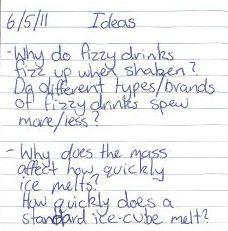 6/5/11 Ideas
- Why do fizzy drinks
fizz up when shaken?
Do different types/brands
of fizzy drinks spew
more/less?
- Why does the mass
affect how quickly
ice melts?
How quickly does a
standard ice-cube melt?